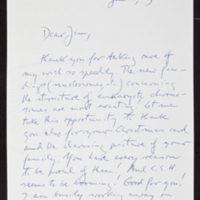 Dear Jim,
Thank you for taking care of
my wish so speedily. The new fin-
dings (nucleosomes etc.) concerning
the structure of eukaryotic chromo-
somes are most exciting! Let me
take this opportunity to thank
you also for your Christmas card
and the charming picture of your
family. You have every reason
to be proud of them! And C.S.H.
seems to be booming! Good for you!
I am busily working away on